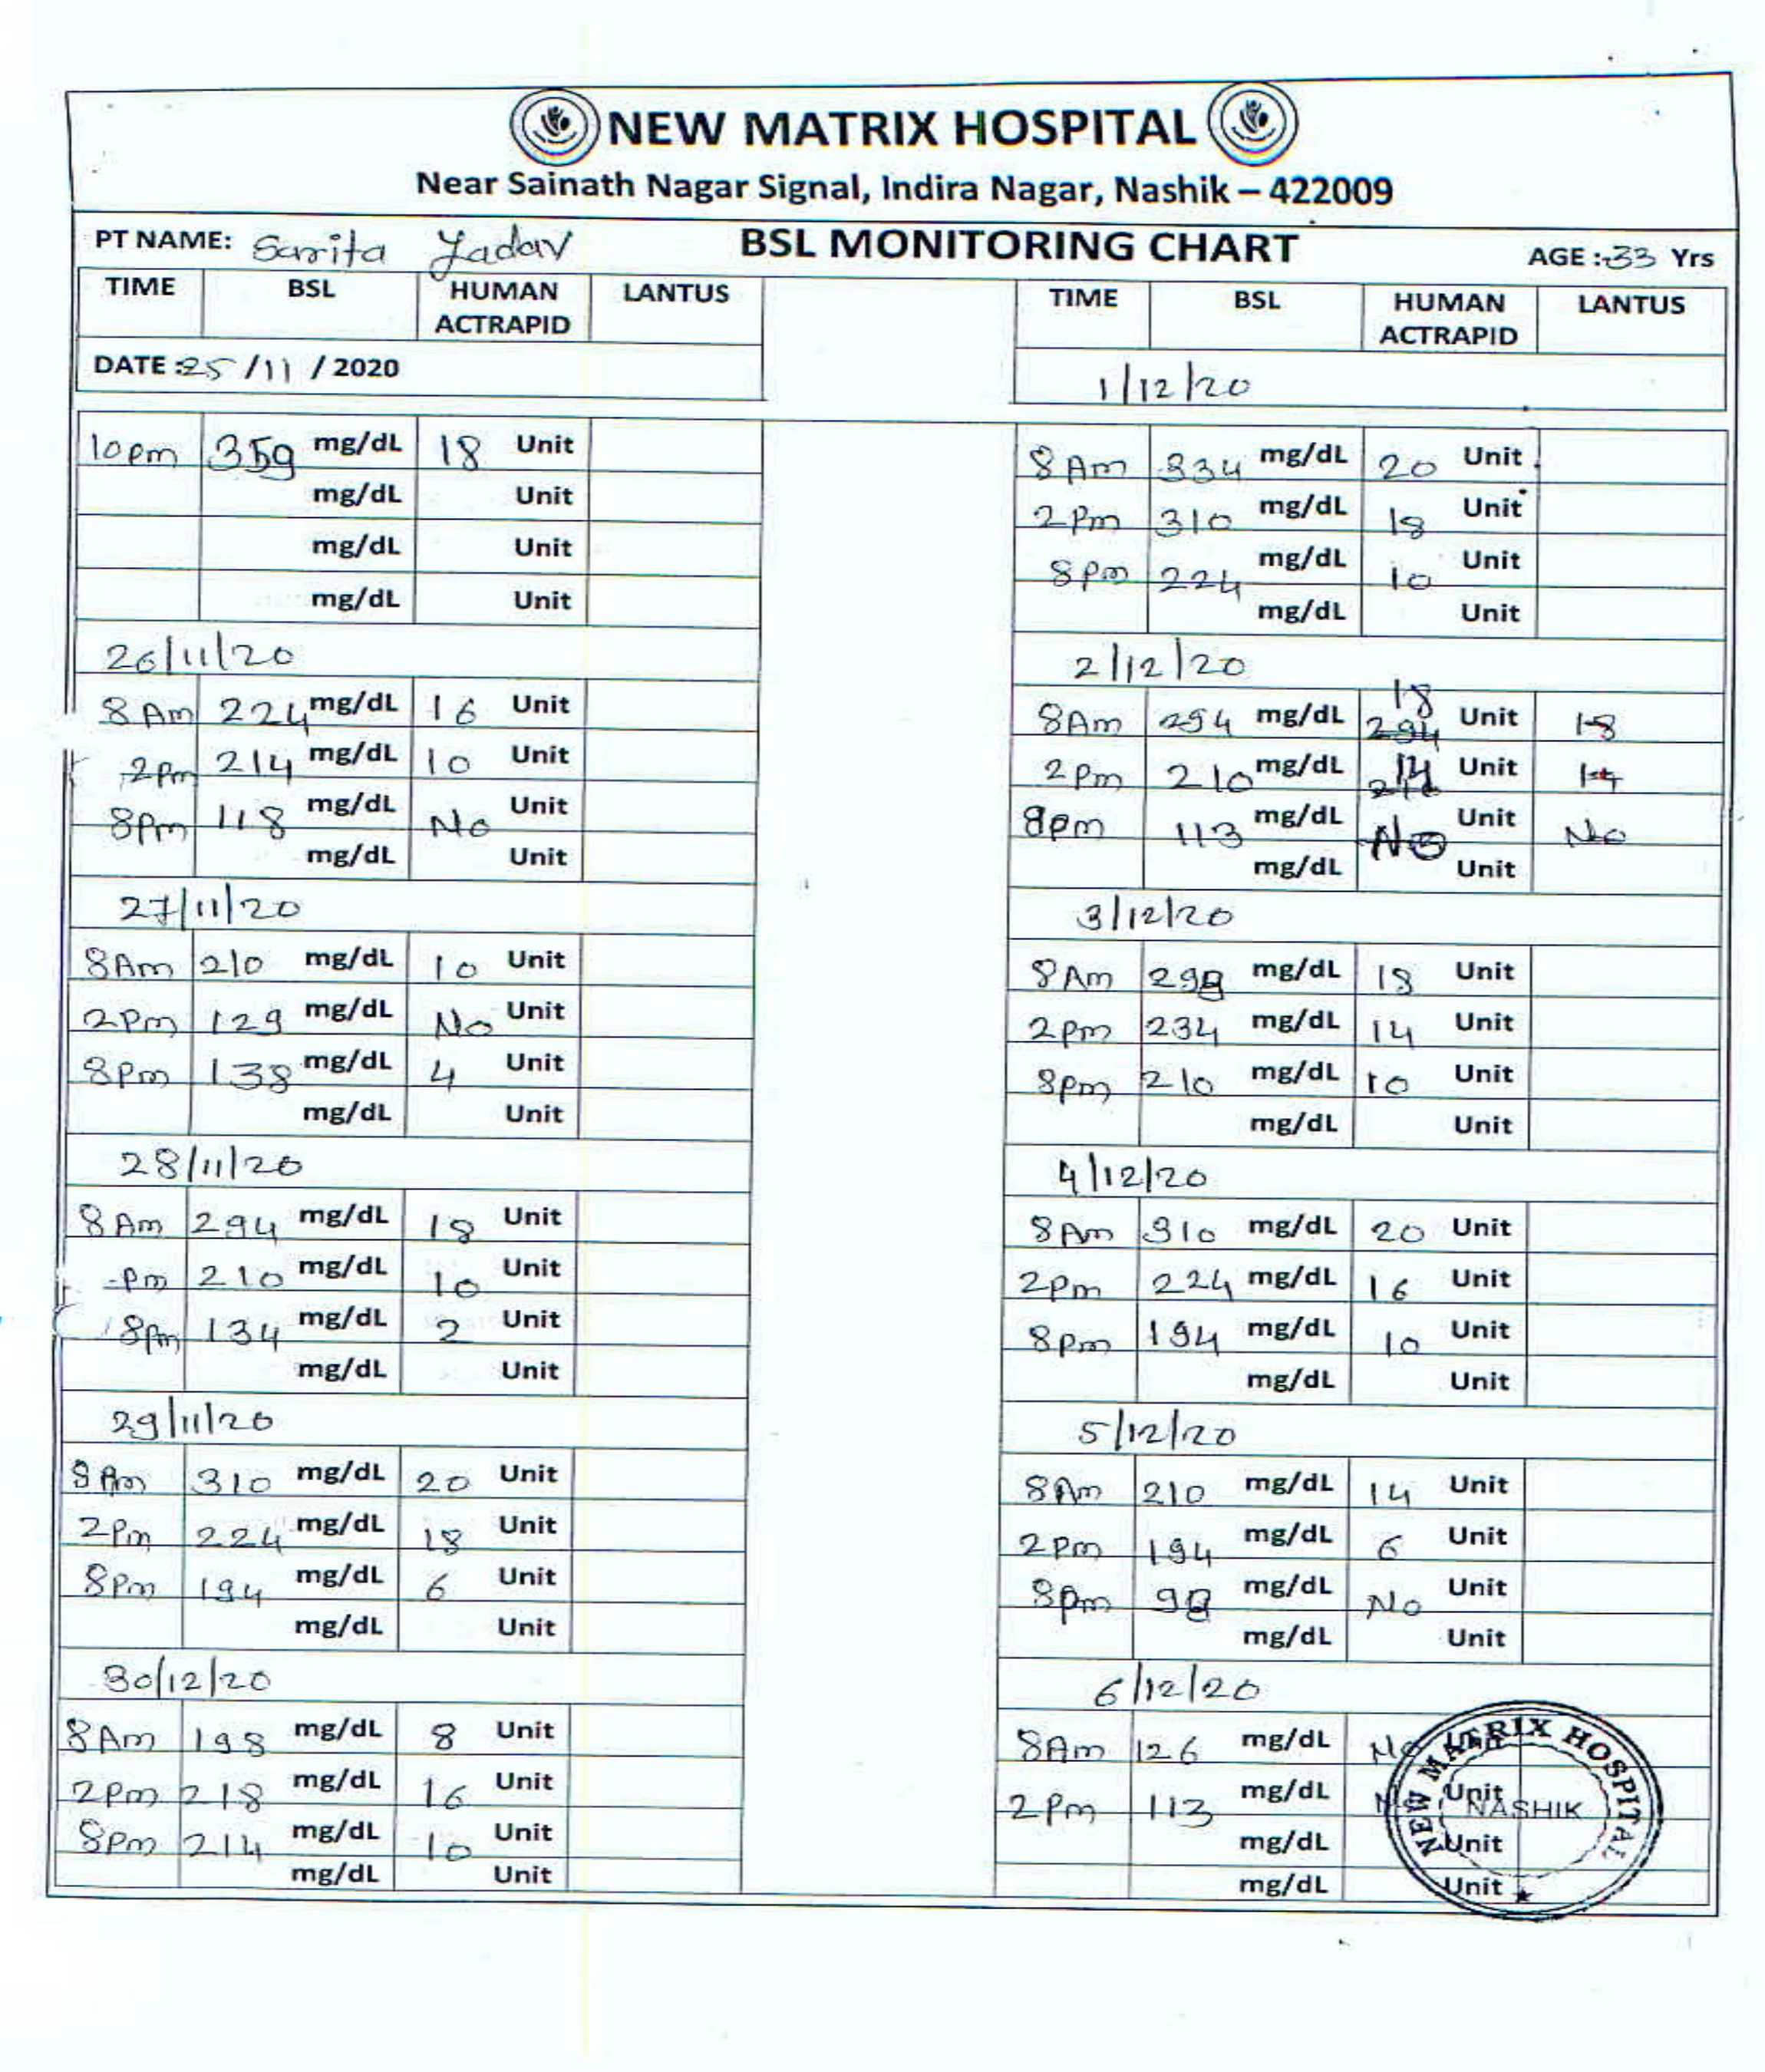 NEW MATRIX HOSPITAL
Near Sainath Nagar Signal, Indira Nagar, Nashik – 422009
PT NAME: Sarita Yadav BSL MONITORING CHART AGE :- 33 Yrs
TIME BSL HUMAN ACTRAPID LANTUS
DATE : 25/11/2020
10pm 359 mg/dL 18 Unit
mg/dL Unit
mg/dL Unit
mg/dL Unit
26/11/20
8Am 224 mg/dL 16 Unit
2pm 214 mg/dL 10 Unit
8pm 118 mg/dL No Unit
mg/dL Unit
27/11/20
8Am 210 mg/dL 10 Unit
2Pm 129 mg/dL No Unit
8Pm 138 mg/dL 4 Unit
mg/dL Unit
28/11/20
8Am 294 mg/dL 18 Unit
pm 210 mg/dL 10 Unit
8pm 134 mg/dL 2 Unit
mg/dL Unit
29/11/20
8Am 310 mg/dL 20 Unit
2Pm 224 mg/dL 18 Unit
8Pm 194 mg/dL 6 Unit
mg/dL Unit
30/12/20
8Am 198 mg/dL 8 Unit
2Pm 218 mg/dL 16 Unit
8pm 214 mg/dL 10 Unit
mg/dL Unit
TIME BSL HUMAN ACTRAPID LANTUS
1/12/20
8Am 334 mg/dL 20 Unit
2Pm 310 mg/dL 18 Unit
8pm 224 mg/dL 10 Unit
mg/dL Unit
2/12/20
8Am 294 mg/dL 18 Unit 18
2pm 210 mg/dL 14 Unit 14
8pm 113 mg/dL No Unit No
mg/dL Unit
3/12/20
8Am 298 mg/dL 18 Unit
2pm 234 mg/dL 14 Unit
8pm 210 mg/dL 10 Unit
mg/dL Unit
4/12/20
8Am 310 mg/dL 20 Unit
2pm 224 mg/dL 16 Unit
8pm 194 mg/dL 10 Unit
mg/dL Unit
5/12/20
8Am 210 mg/dL 14 Unit
2pm 194 mg/dL 6 Unit
8pm 98 mg/dL No Unit
mg/dL Unit
6/12/20
8Am 126 mg/dL No Unit
2pm 113 mg/dL Unit
mg/dL Unit
mg/dL Unit
NEW MATRIX HOSPITAL
NASHIK